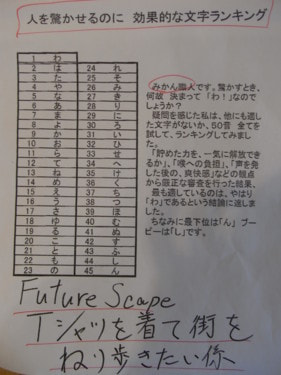 人を驚かせるのに 効果的な文字ランキング
1 わ
2 は
3 た
4 や
5 な
6 あ
7 ま
8 よ
9 か
10 お
11 ら
12 て
13 ね
14 め
15 え
16 う
17 さ
18 ゆ
19 る
20 こ
21 と
22 も
23 の
24 れ
25 そ
26 み
27 き
28 り
29 に
30 ろ
31 い
32 ひ
33 せ
34 へ
35 け
36 く
37 ち
38 つ
39 ほ
40 む
41 ぬ
42 す
43 ふ
44 し
45 ん
みかん職人です。驚かすとき、
何故 決まって「わ！」なので
しょうか？
疑問を感じた私は、他にも適し
た文字がないか、50音 全てを
試して、ランキングしてみまし
た。
「貯めた力を、一気に解放でき
るか」、「喉への負担」、「声を発
した後の、爽快感」などの観点
から厳正な審査を行った結果、
最も適しているのは、やはり
「わ」であるという結論に達しまし
た。
ちなみに最下位は「ん」ブー
ビーは「し」です。
Future Scape
Tシャツを着て街を
ねり歩きたい係